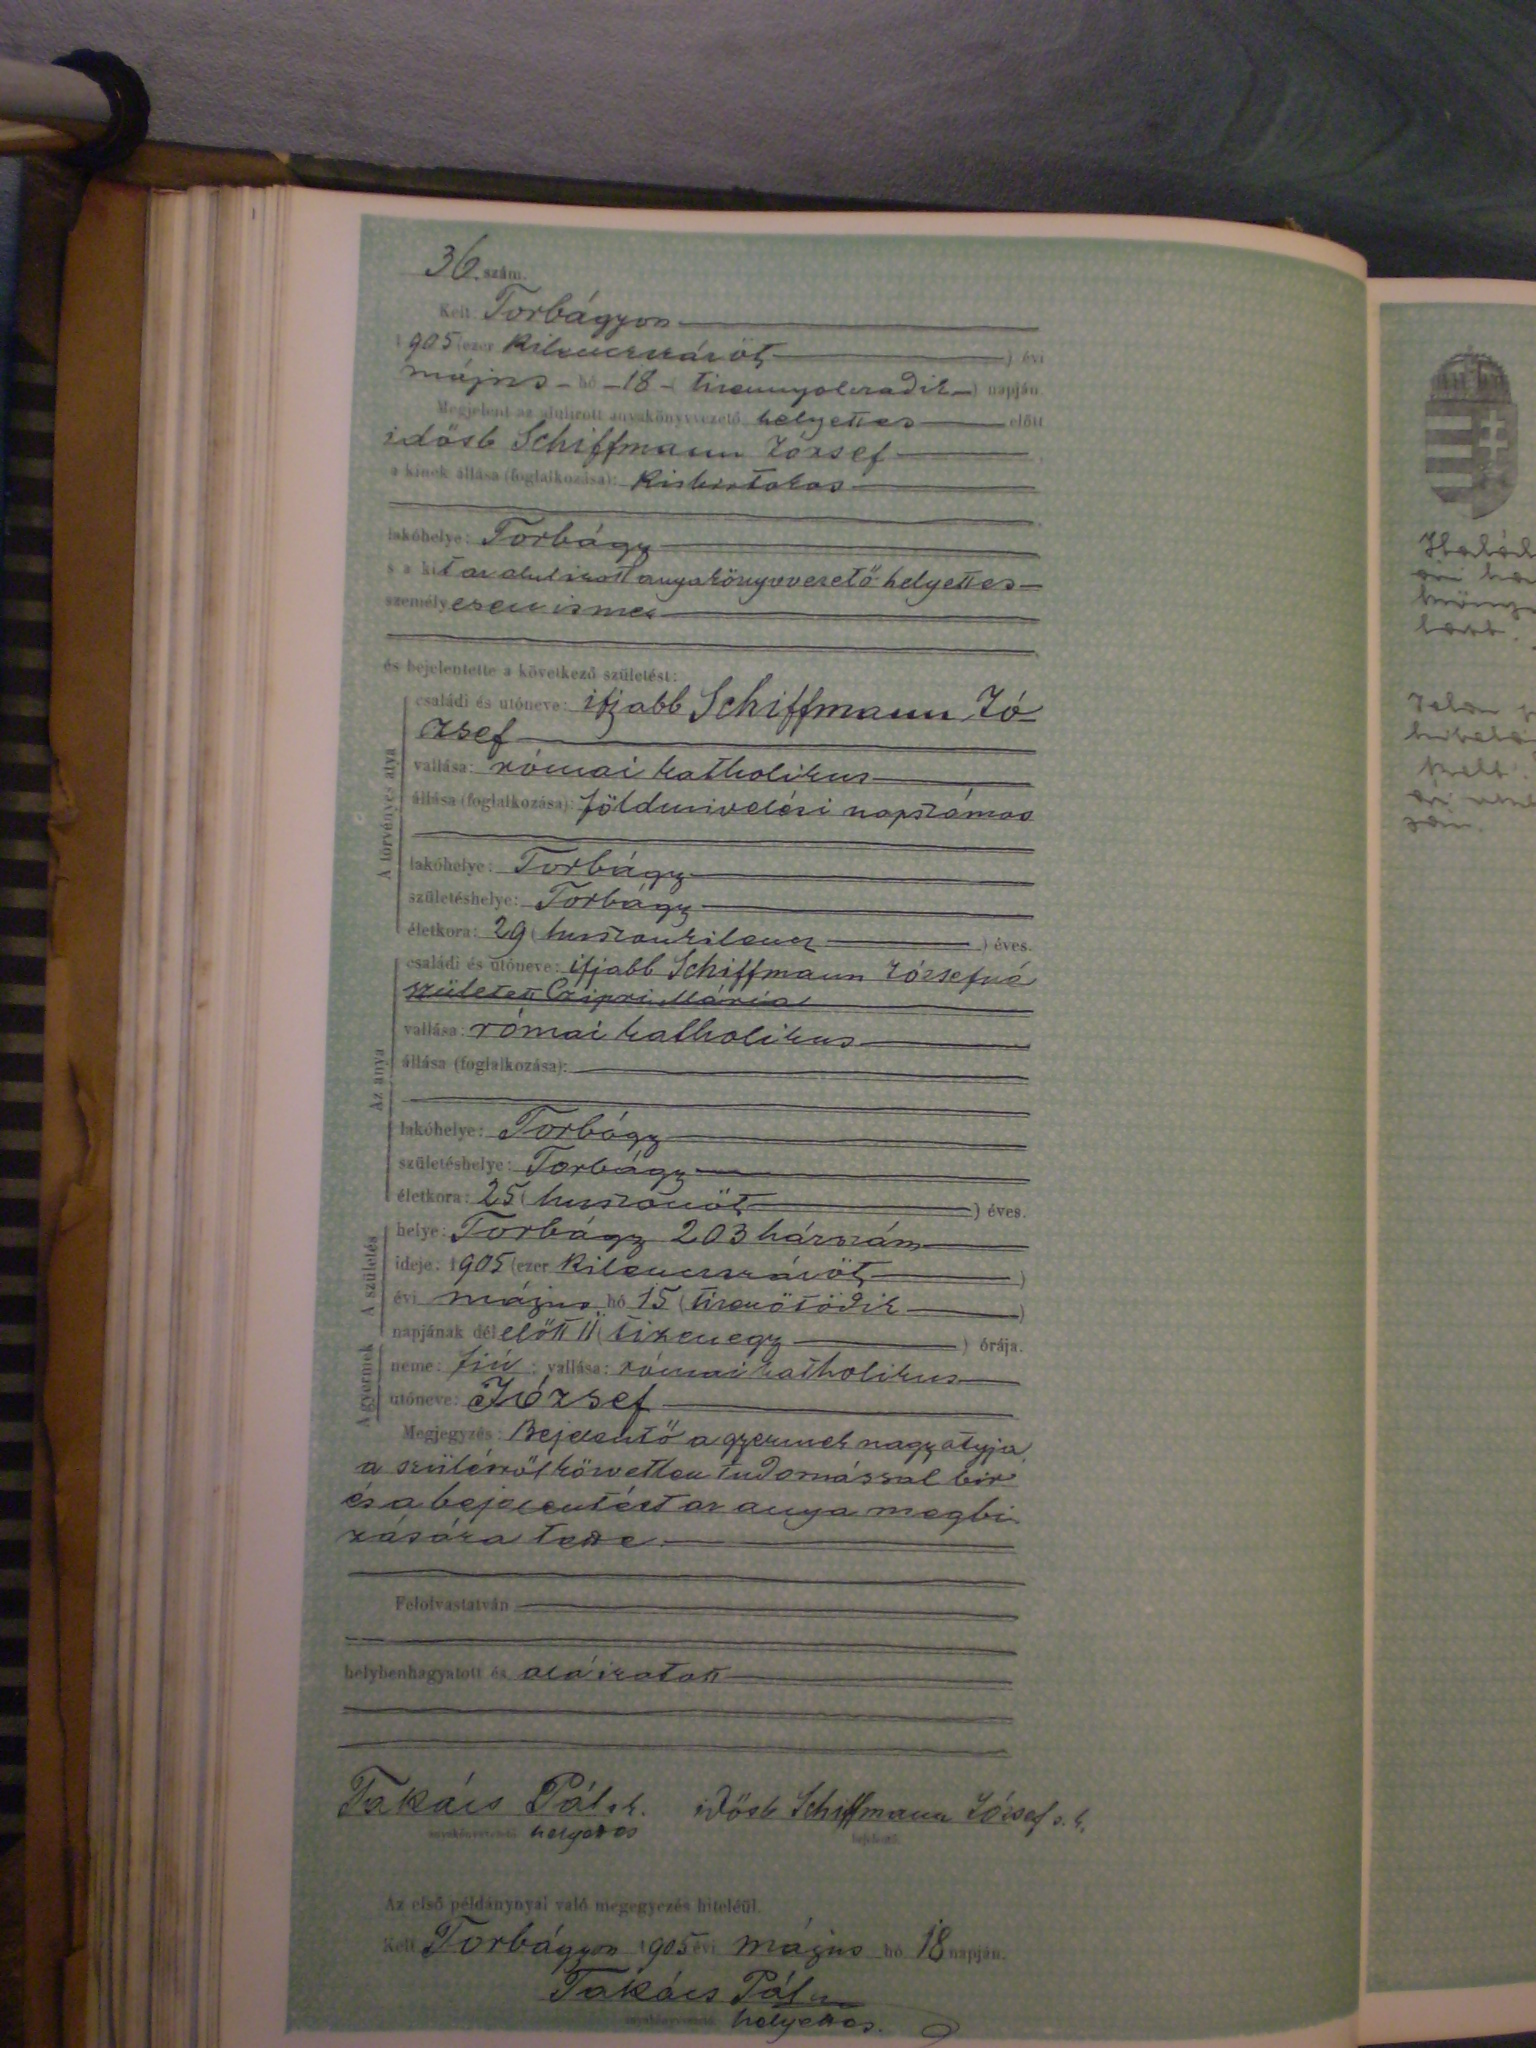 36. szám.
Kelt Torbágyon
1905 (ezer kilenczszázöt) évi
május hó 18 (tizennyolczadik) napján
Megjelent az alulirott anyakönyvvezető helyettes előtt
idősb Schiffmann József
a kinek állása (foglalkozása): kisbirtokos
lakóhelye: Torbágy
s a kit az alulirott anyakönyvvezető helyettes
személyesen ismer
és bejelentette a következő születést:
A törvényes atya
családi és utóneve: ifjabb Schiffmann Jó-
zsef
vallása: római katholikus
állása (foglalkozása): földmivelési napszámos
lakóhelye: Torbágy
születéshelye: Torbágy
életkora: 29 (huszonkilencz) éves.
Az anya
családi és utóneve: ifjabb Schiffmann Józsefné
született Czipri Mária
vallása: római katholikus
állása (foglalkozása):
lakóhelye: Torbágy
születéshelye: Torbágy
életkora: 25 (huszonöt) éves.
A születés
helye: Torbágy 203 házszám
ideje: 1905 (ezer kilenczszázöt)
évi május hó 15 (tizenötödik)
napjának délelőtt 11 (tizenegy) órája.
A gyermek
neme: fiú; vallása: római katholikus
utóneve: József
Megjegyzés: Bejelentő a gyermek nagyatyja,
a szülésről közvetlen tudomással bir
és a bejelentést az anya megbi-
zására tette.
Felolvastatván
helybenhagyatott és aláiratott
Takács Pál s.k. idősb Schiffmann József s. k.
anyakönyvvezető helyettes bejelentő
Az első példánynyal való megegyezés hiteléül.
Kelt Torbágyon 1905 évi május hó 18 napján.
Takács Pál
anyakönyvvezető helyettes.